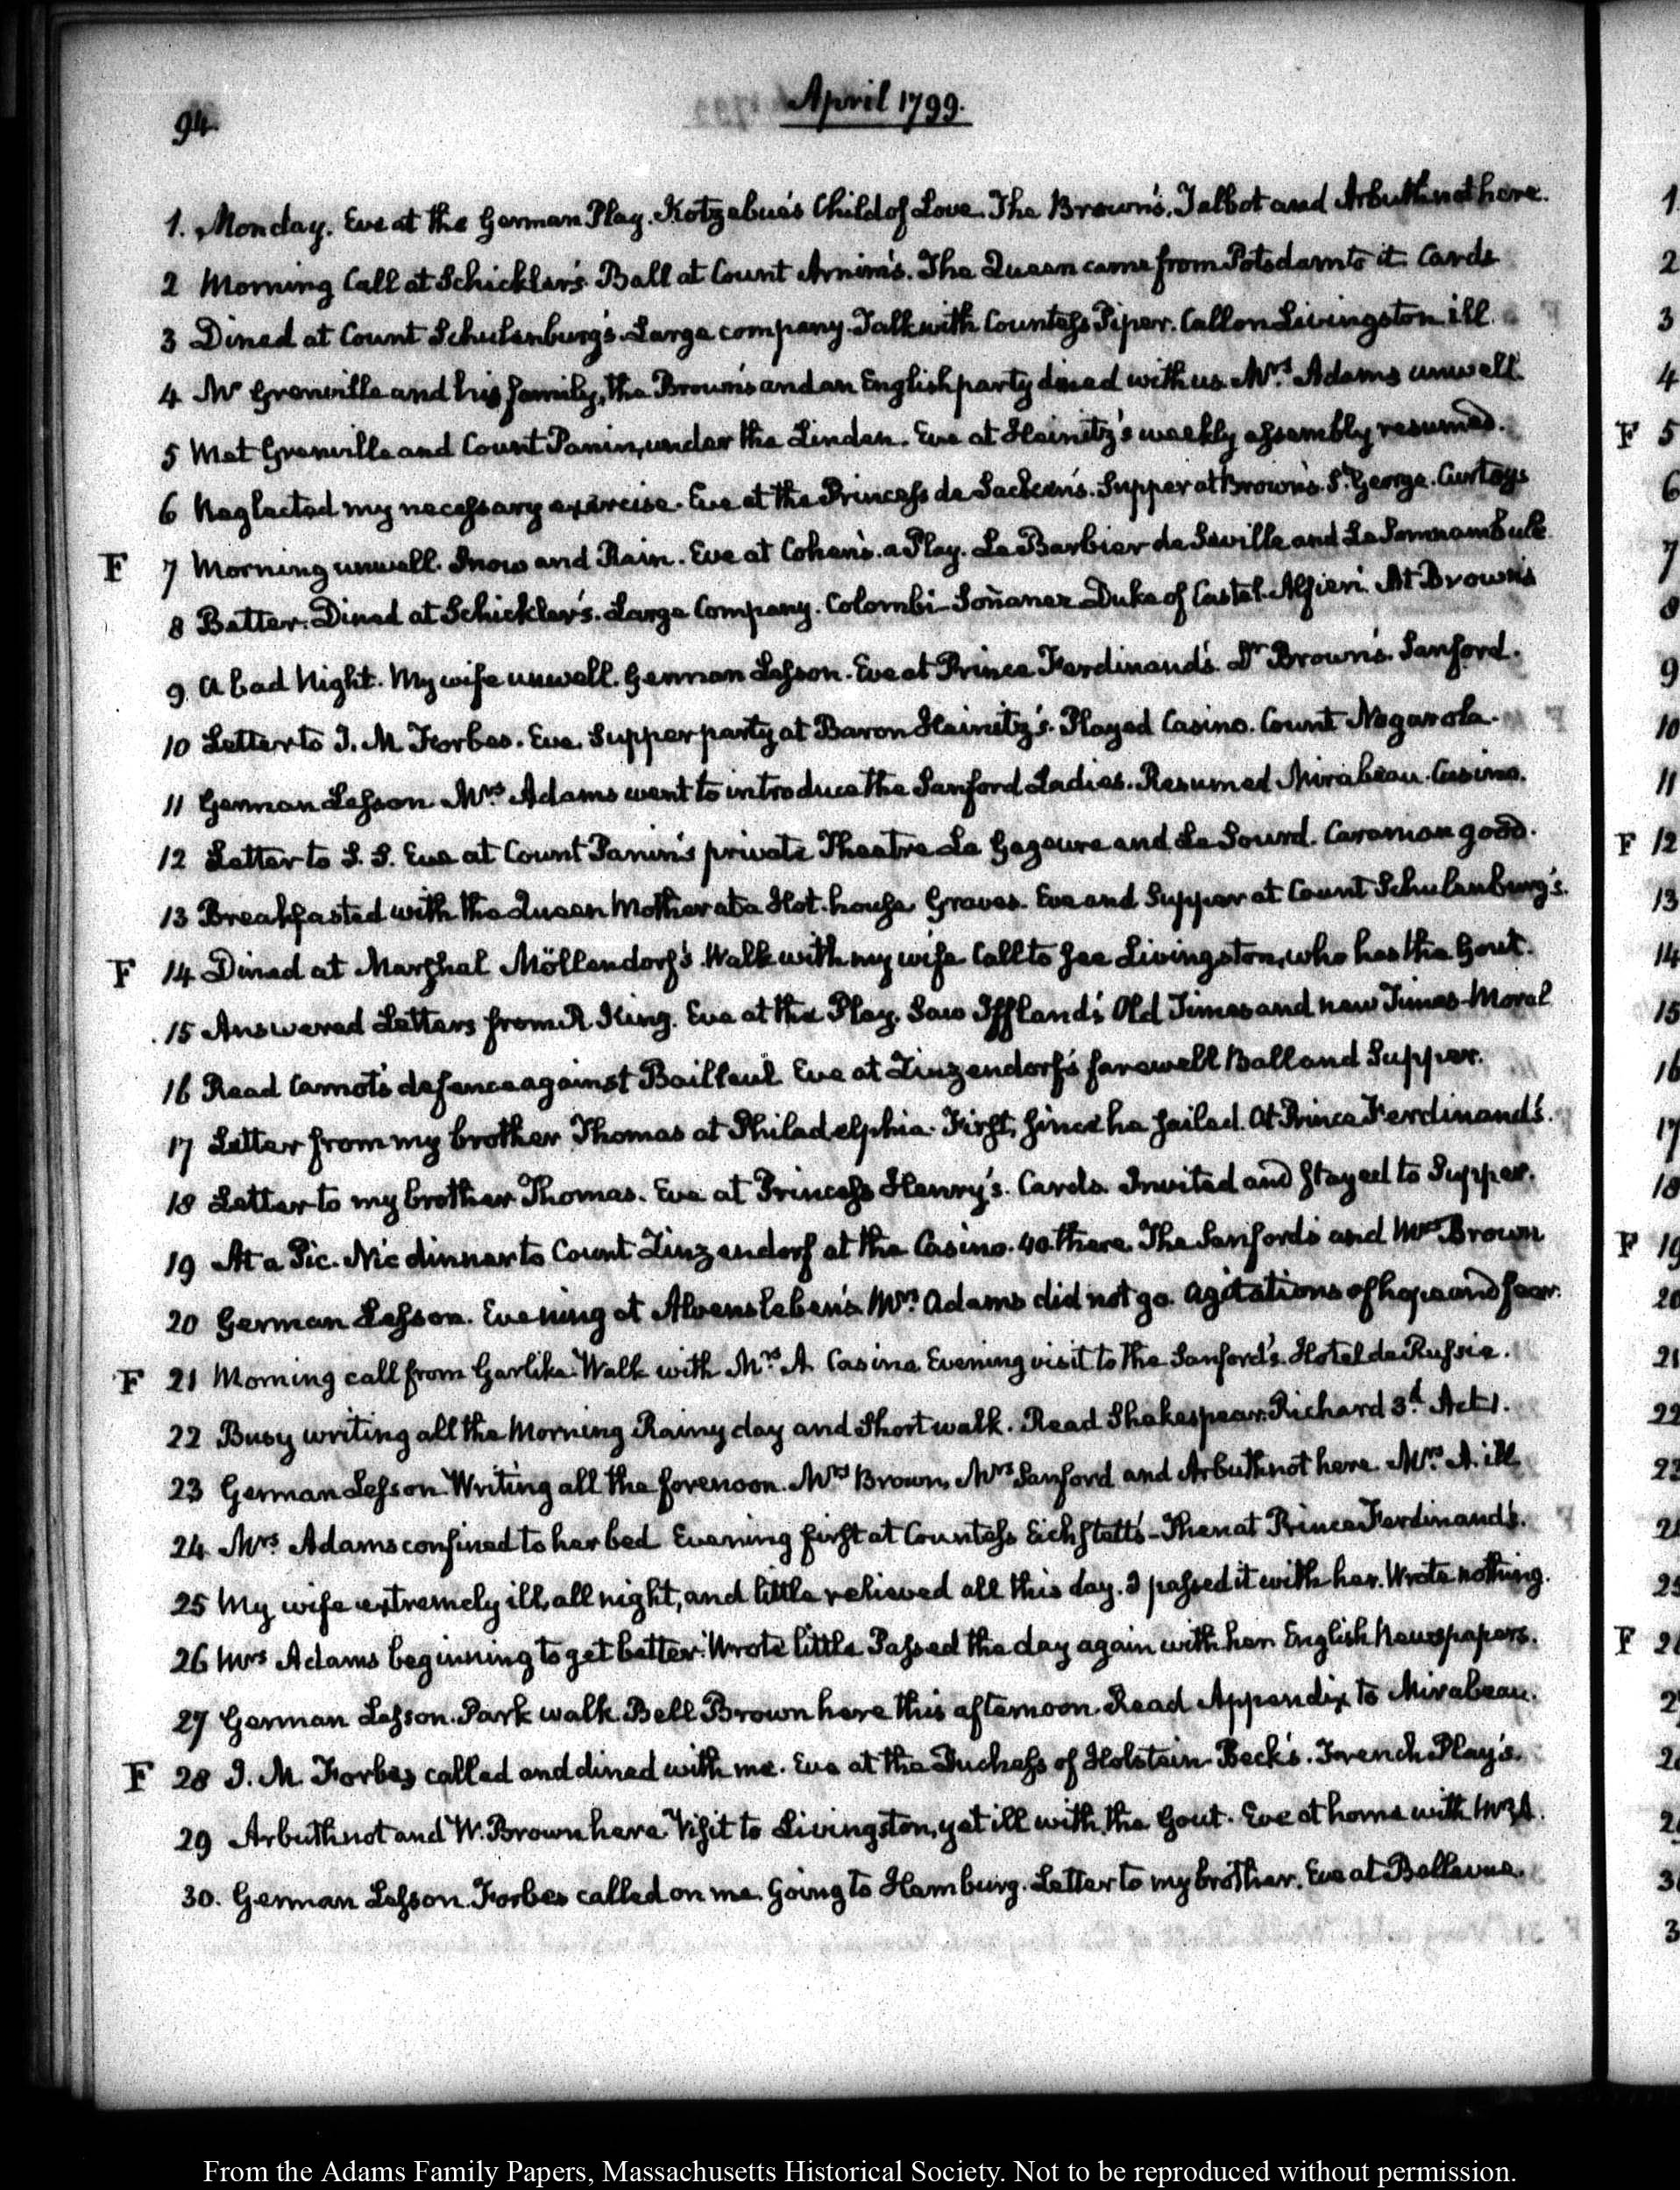 94
April 1799.
1. Monday. Eve at the German Play. Kotzebue's Child of Love. The Brown's, Talbot and Arbuthnot here.
2 Morning Call at Schickler's. Ball at Count Arnim's. The Queen came from Potsdam to it. Cards
3 Dined at Count Schulenburg's. Large company. Talk with Countess Piper. Call on Livingston ill.
4 Mr Grenville and his family, the Brown's and an English party dined with us. Mrs. Adams unwell.
5 Met Grenville and Count Panin, under the Linden. Eve at Heinitz's weekly assembly resumed.
6 Neglected my necessary exercise. Eve at the Princess de Sacken's. Supper at Brown's. St. George. Curtoys
F 7 Morning unwell. Snow and Rain. Eve at Cohen's. a Play. Le Barbier de Seville and La Somnambule
8 Better. Dined at Schickler's. Large Company. Colombi-Soñanez Duke of Castel-Alfieri. At Brown's
9. A bad Night. My wife unwell. German Lesson. Eve at Prince Ferdinand's. Dr Brown's. Sanford.
10 Letter to J. M Forbes. Eve. Supper party at Baron Heinitz's. Played Casino. Count Nogarola.
11 German Lesson. Mrs Adams went to introduce the Sanford Ladies. Resumed Mirabeau. Casino.
12 Letter to S. S. Eve at Count Panin's private Theatre La Gageure and Le Sourd. Caraman good.
13 Breakfasted with the Queen Mother at a Hot-house Graves. Eve and Supper at Count Schulenburg's.
F 14 Dined at Marshal Möllendorf's. Walk with my wife Call to see Livingston, who has the Gout.
15 Answered Letters from R. King. Eve at the Play. Saw Iffland's Old Times and new Times-Moral
16 Read Carnot's defence against Bailleul. Eve at Zinzendorf's farewell Ball and Supper.
17 Letter from my brother Thomas at Philadelphia. First, since he sailed. At Prince Ferdinand's.
18 Letter to my brother Thomas. Eve at Princess Henry's. Cards. Invited and stayed to Supper.
19 At a Pic-Nic dinner to Count Zinzendorf at the Casino. 40 there. The Sanfords and Mrs Brown
20 German Lesson. Evening at Alvensleben's. Mrs. Adams did not go. Agitations of hope and fear.
F 21 Morning call from Garlike. Walk with Mrs A Casino Evening visit to the Sanford's. Hotel de Russie.
22 Busy writing all the Morning Rainy day and Short walk. Read Shakespear. Richard 3d. Act 1.
23 German Lesson. Writing all the forenoon. Mrs Brown, Mrs Sanford and Arbuthnot here. Mrs. A. ill
24 Mrs Adams confined to her bed Evening first at Countess Eichstett's - Then at Prince Ferdinand's.
25 My wife extremely ill, all night, and little relieved all this day. I passed it with her. Wrote nothing.
26 Mrs Adams beginning to get better. Wrote little. Passed the day again with her. English Newspapers.
27 German Lesson. Park walk. Bell Brown here this afternoon. Read Appendix to Mirabeau.
F 28 J. M. Forbes called and dined with me. Eve at the Duchess of Holstein-Beck's. French Play's.
29 Arbuthnot and W. Brown here. Visit to Livingston, yet ill with the Gout. Eve at home with Mrs A.
30. German Lesson. Forbes called on me. Going to Hamburg. Letter to my brother. Eve at Bellevue.
From the Adams Family Papers, Massachusetts Historical Society. Not to be reproduced without permission.